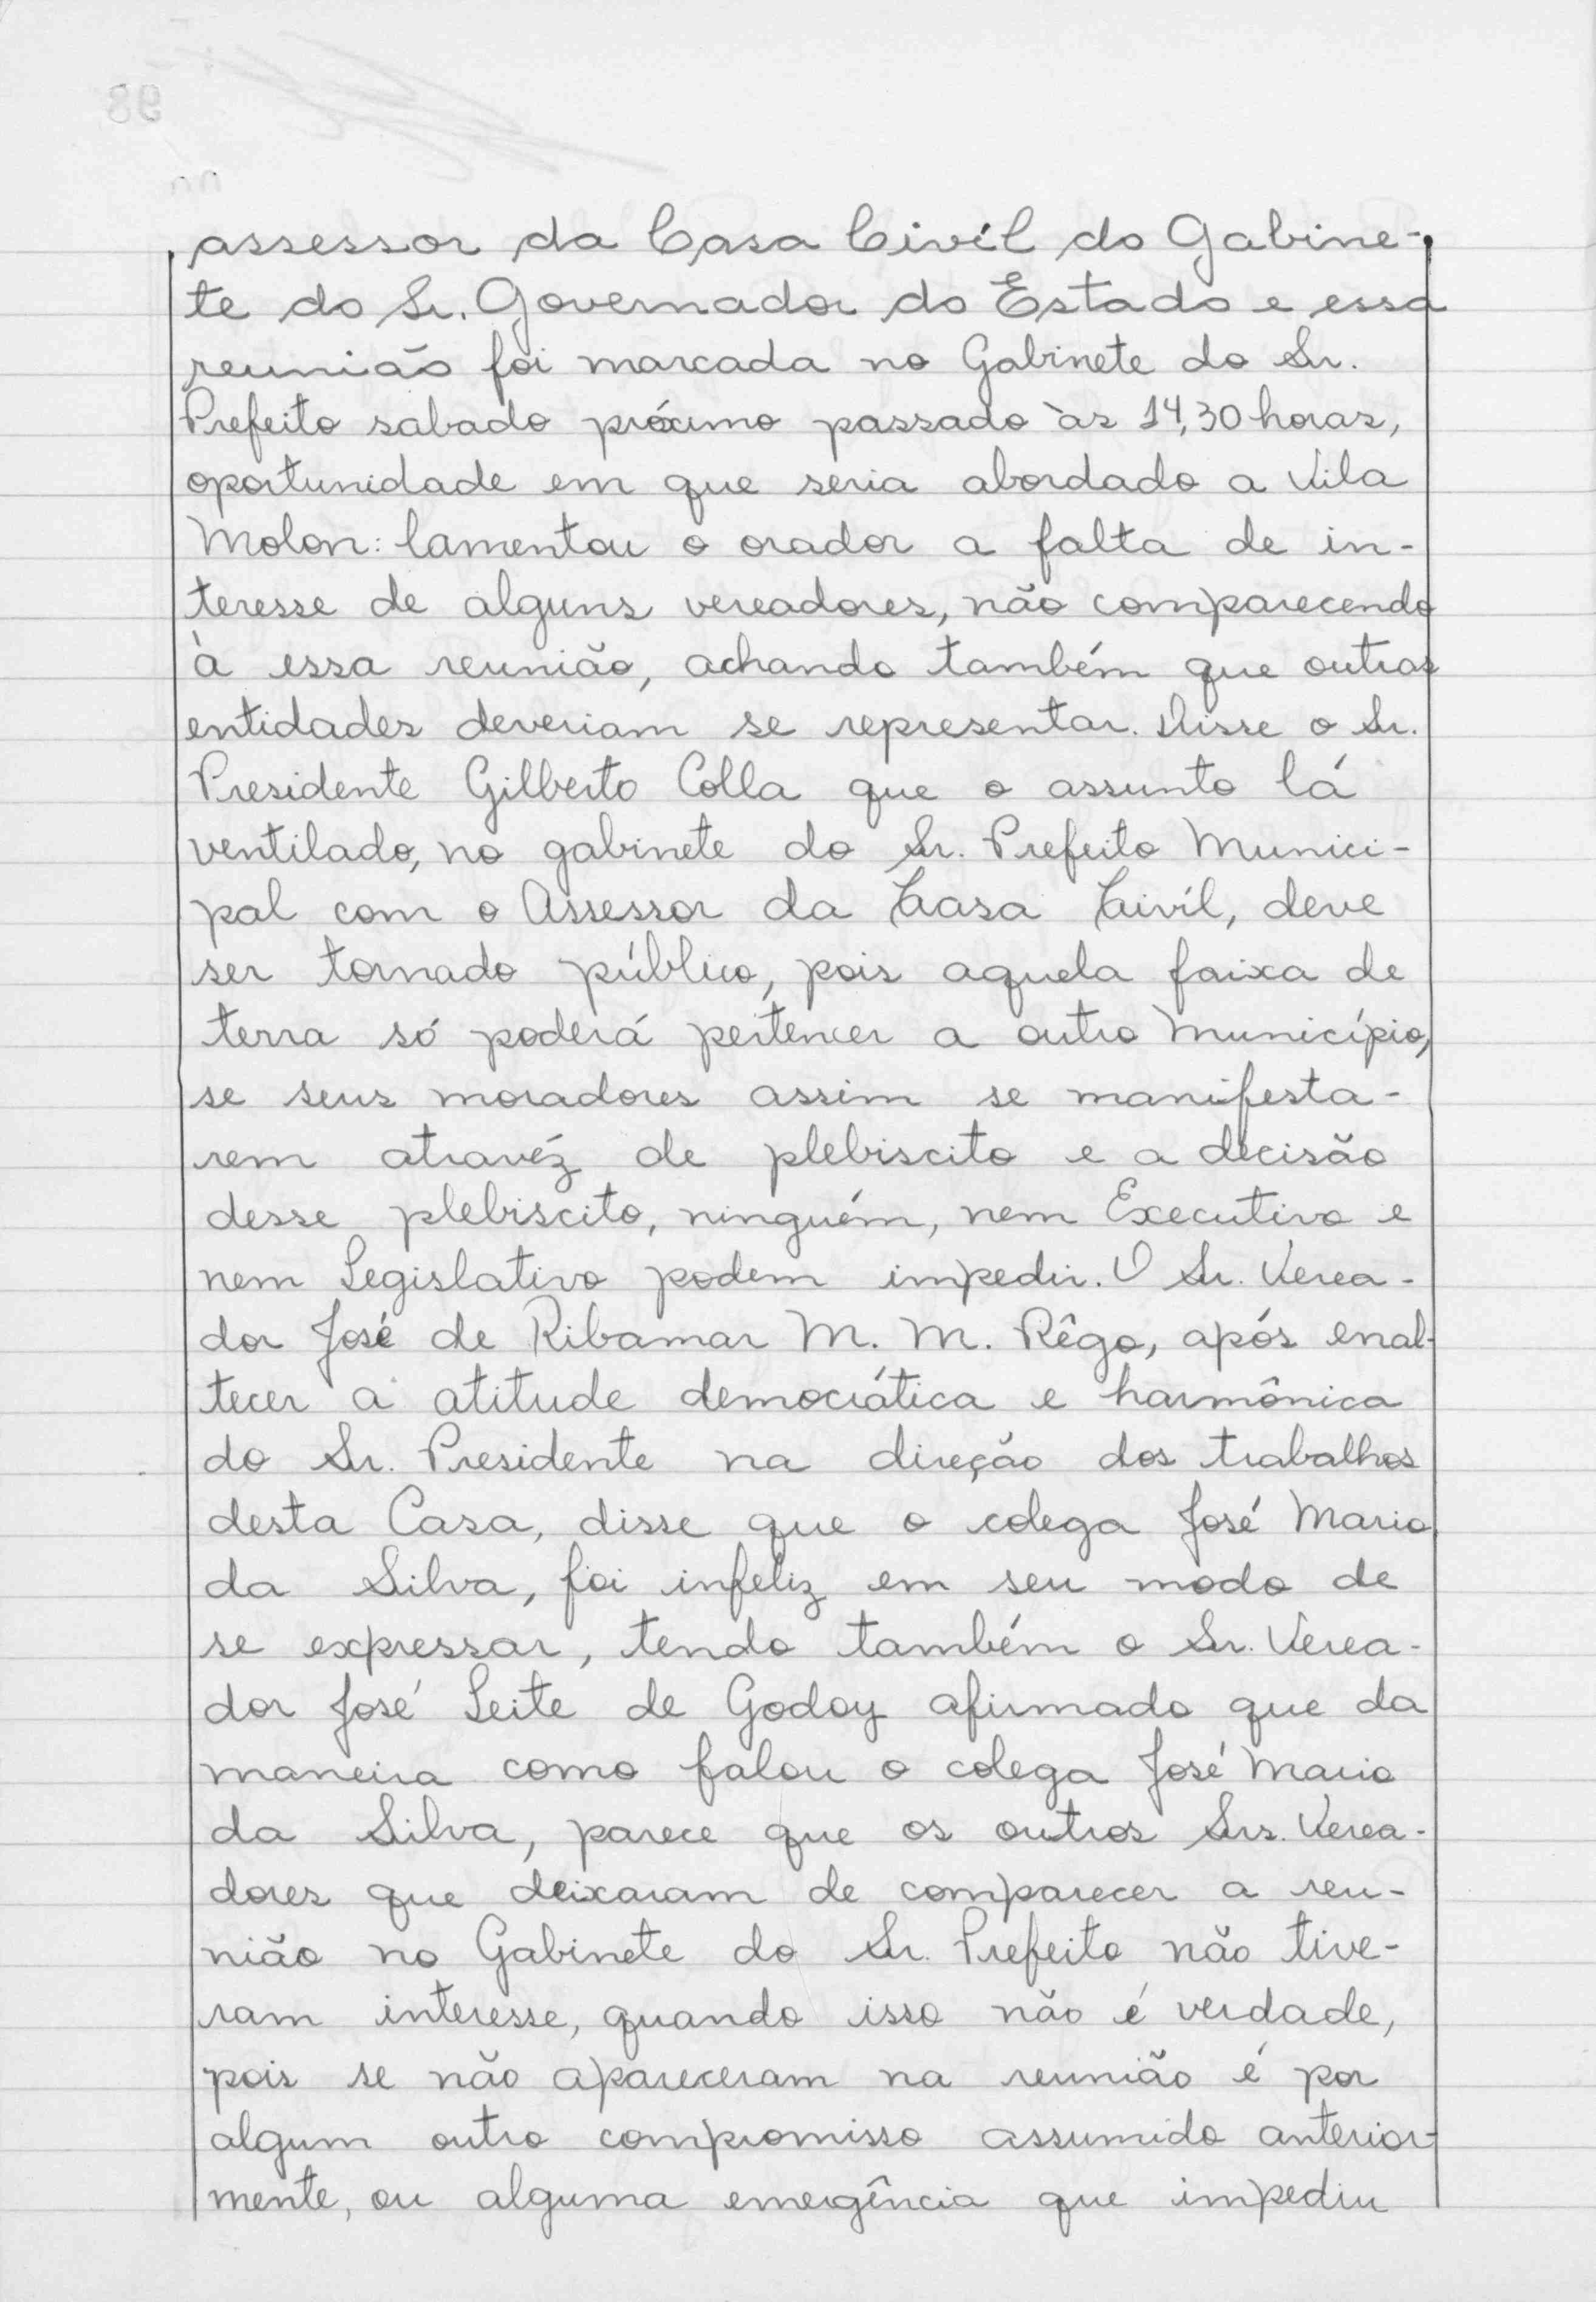 assessor da Casa Civíl do Gabine-
te do Sr. Governador do Estado e essa
reunião foi marcada no Gabinete do Sr.
Prefeito sabado próximo passado às 14,30 horas,
oportunidade em que seria abordado a Vila
Molon: lamentou o orador a falta de in-
teresse de alguns vereadores, não comparecendo
à essa reunião, achando também que outras
entidades deveriam se representar. Disse o Sr.
Presidente Gilberto Colla que o assunto lá
ventilado, no gabinete do Sr. Prefeito Munici-
pal com o Assessor da Casa Civíl, deve
ser tornado público, pois aquela faixa de
terra só poderá pertencer a outro Município,
se seus moradores assim se manifesta-
rem atravéz de plebiscito e a decisão
desse plebiscito, ninguém, nem Executivo e
nem Legislativo podem impedir. O Sr. Verea-
dor José de Ribamar M. M. Rêgo, após enal-
tecer a atitude democrática e harmônica
do Sr. Presidente na direção dos trabalhos
desta Casa, disse que o colega José Mario
da Silva, foi infeliz em seu modo de
se expressar, tendo também o Sr. Verea-
dor José Leite de Godoy afirmado que da
maneira como falou o colega José Mario
da Silva, parece que os outros Srs. Verea-
dores que deixaram de comparecer a reu-
nião no Gabinete do Sr. Prefeito não tive-
ram interesse, quando isso não é verdade,
pois se não apareceram na reunião é por
algum outro compromisso assumido anterior-
mente, ou alguma emergência que impediu